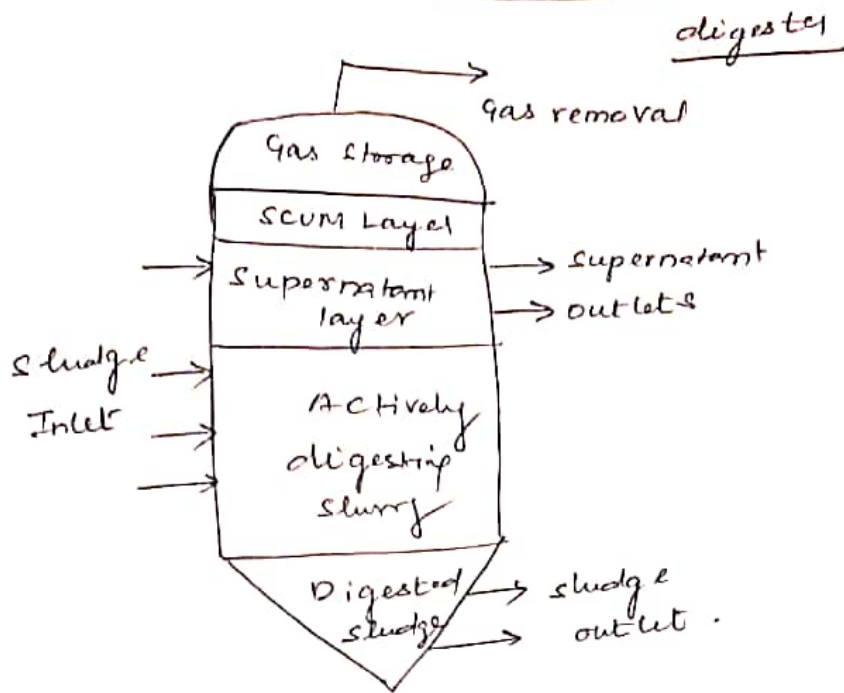 digester
Gas removal
Gas storage
SCUM Layer
Supernatant
layer
Supernatant
outlets
Sludge
Inlet
Actively
digesting
slurry
Digested
sludge
sludge
outlet .